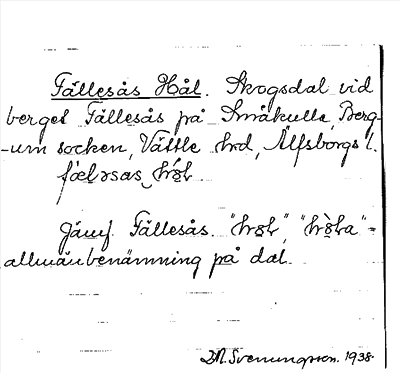 Fällesås Hål. Skogsdal vid
berget Fällesås på Småkulla, Berg-
-um socken, Vättle hrd, Älfsborgs l.
Jämf. Fällesås.
allmän benämning på dal.
Svenungsson. 1938.